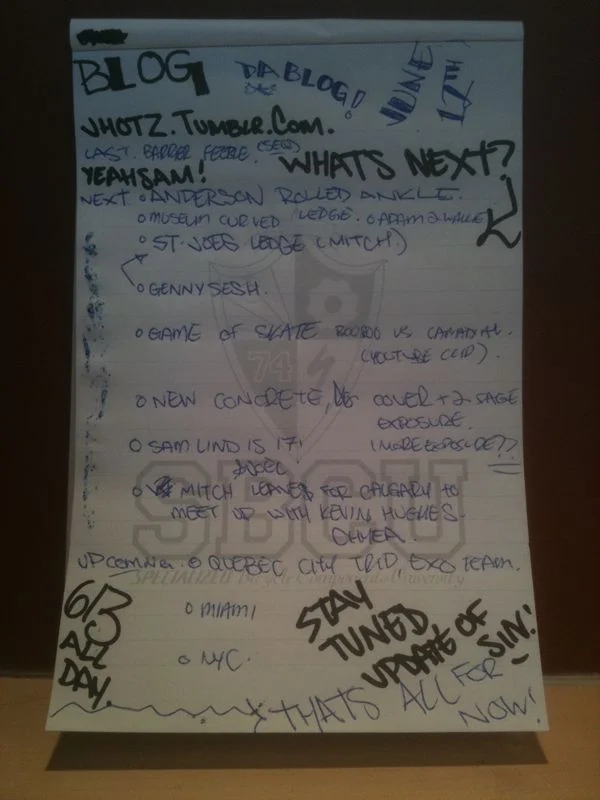 BLOG
DA BLOG!
JUNE 12TH
VHOTZ.TUMBLR.COM.
LAST.
YEAH SAM!
WHATS NEXT?
NEXT o ANDERSON ROLLED ANKLE.
o MUSEUM CURVED LEDGE. o ADAM 2
o ST-JOES LEDGE (MITCH)
o GENNY SESH.
o GAME OF SKATE VS
(YOUTUBE CLIP).
o NEW CONCRETE, COVER + 2 PAGE
EXPOSURE.
(MORE EXPOSURE??
o SAM LIND IS 17!
o MITCH LEAVES FOR CALGARY TO
MEET UP WITH KEVIN HUGHES.
UPCOMING o QUEBEC CITY TRIP, EXO TEAM.
o MIAMI
o NYC.
6/3
ALL
DAY.
STAY
TUNED
UPDATE OF SIN!
THATS ALL FOR
NOW!
74
SBCU
SPECIALIZED Bicycle Components University